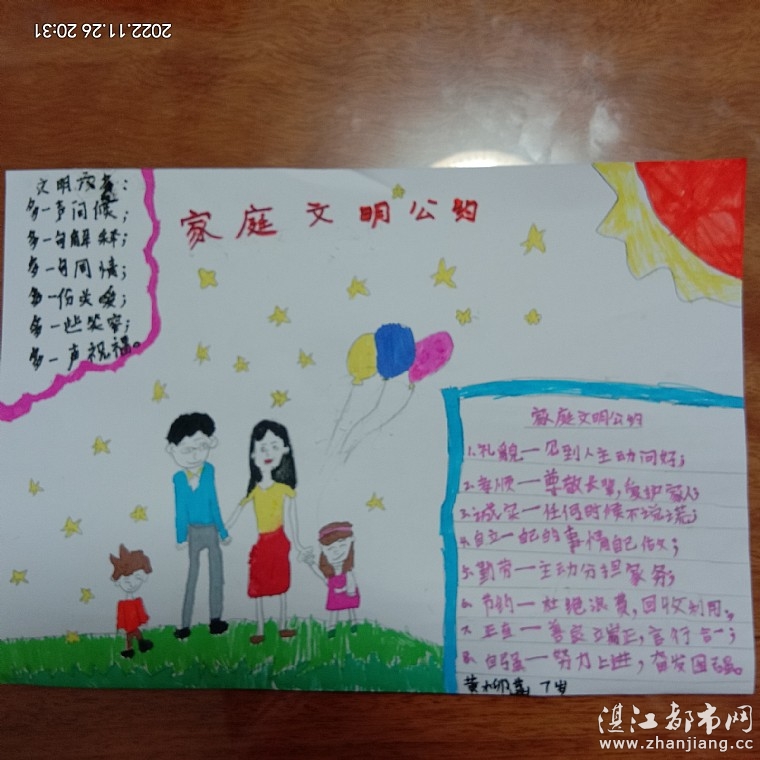 2022.11.26 20:31
家庭文明公约
文明
多一声问候；
多一句解释；
多一句同情；
多一份关爱；
多一些宽容；
多一声祝福。
家庭文明公约
1.礼貌一见到人主动问好；
2.孝顺一尊敬长辈，爱护家人；
3.诚实一任何时候不说谎；
4.自立一自己的事情自己做；
5.勤劳一主动分担家务；
6.节约一杜绝浪费，回收利用。
7.正直一善良正，言行合一；
8.自强一努力上进，奋发图强。
黄 7岁
湛江都市网
www.zhanjiang.cc